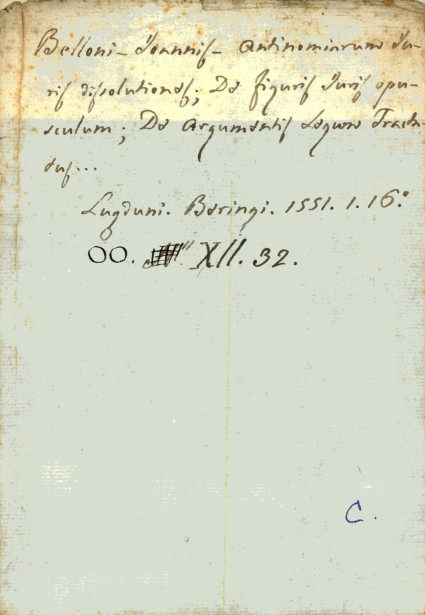 Belloni - Joannis - Antinomiarum Ju-
ris dissolutiones; De figuris Juris opu-
sculum; De argumentis Legum Tracta-
tus...
Lugduni. Beringi. 1551. 1. 16.º
OO. XII. 32.
C.